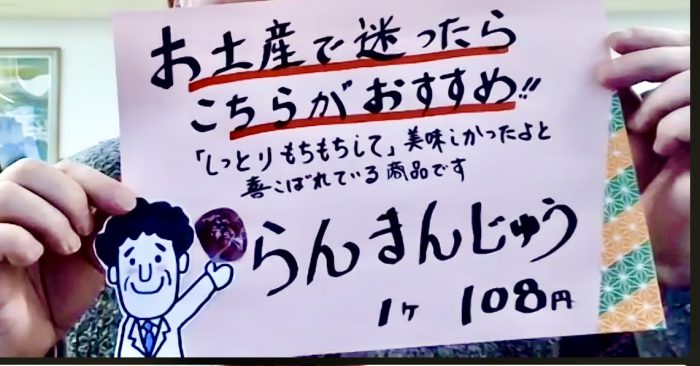 お土産で迷ったら
こちらがおすすめ!!
「しっとりもちもちして」美味しかったよと
喜こばれている商品です
らんまんじゅう
1ヶ 108円